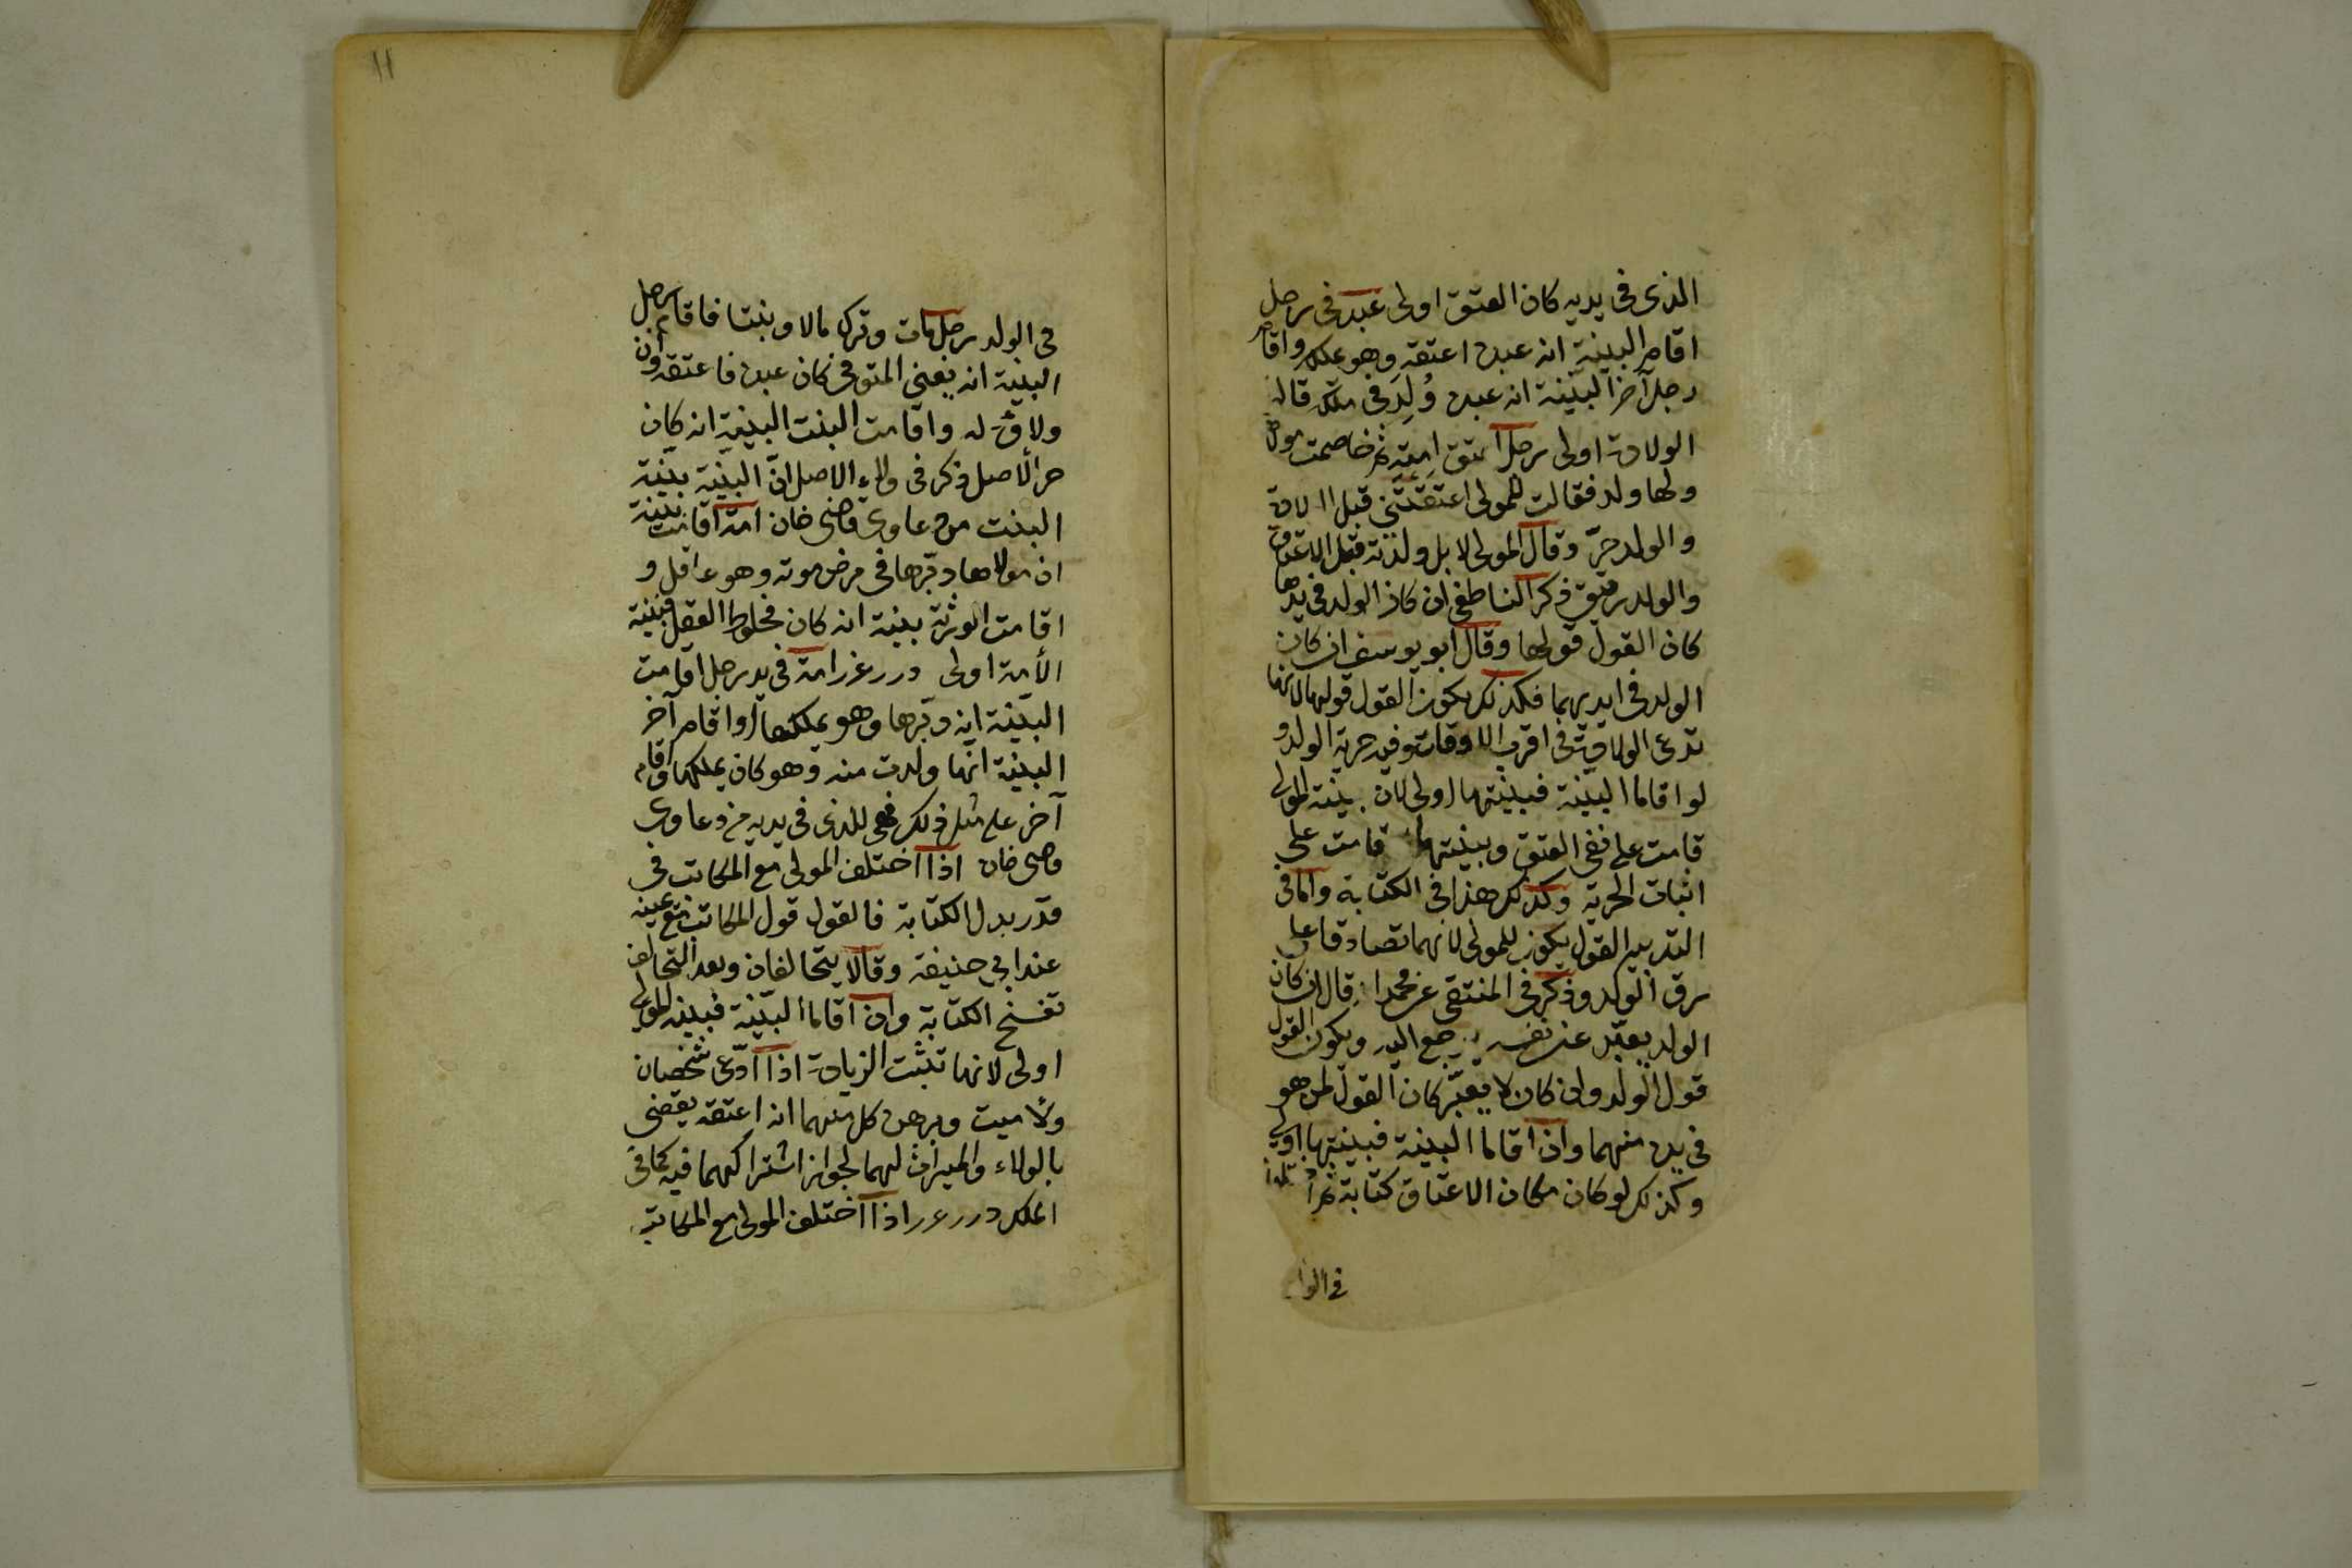 الذى فى يديه كان العتق اولى عبد فى رجل
اقام البينة انه عبده اعتقه وهو يملكه واقام
رجل آخر البيّنة انه عبده وُلِدَ فى ملكه قاله
الولادة اولى رجل اعتق امته ثم خاصمت مولاه
ولها ولد فقالت للمولى اعتقتنى قبل الولادة
والولد حرّ وقال المولى لا بل ولدته قبل الاعتاق
والولد رقيق ذكر الناطفى ان كان الولد فى يدها
كان القول قولها وقال ابو يوسف ان كان
الولد فى ايديهما فكذلك يكون القول قولها لانها
تدعى الولادة فى اقرب الاوقات وفيه حرية الولد و
لو اقاما البيّنة فبينتها اولى لان بينة المولى
قامت على نفى العتق وبينتها قامت على
اثبات الحرية وكذلك هذا فى الكتابة واما فى
التدبير القول يكون للمولى لانهما تصادقا على
رق الولد وذكر فى المنتقى عن محمد قال ان كان
الولد يعبّر عن نفسه يرجع اليه ويكون القول
قول الولد وان كان لا يعبّر كان القول لمن هو
فى يده منهما وان اقاما البينة فبينتها اولى
وكذلك لو كان مكان الاعتاق كتابة ثم
فى الو
١١
فى الولد رجل مات وترك مالا وبنتا فاقام رجل
البينة انه يعنى المتوفى كان عبده فاعتقه وان
ولاؤه له واقامت البنت البينة انه كان
حر الأصل ذكر فى ولاء الاصل انّ البيّنة بيّنة
البنت من دعاوى قاضى خان امة اقامت بينة
ان مولاها دبّرها فى مرض موته وهو عاقل و
اقامت الورثة بينة انه كان مخلوط العقل فبينة
الأمة اولى درر غرر امة فى يد رجل اقامت
البيّنة انه دبّرها وهو يملكها او اقام آخر
البينة انّها ولدت منه وهو كان يملكها واقام
آخر على مثل ذلك فهى للذى فى يديه من دعاوى
قاضى خان اذا اختلف المولى مع المكاتب فى
قدر بدل الكتابة فالقول قول المكاتب مع يمينه
عند ابى حنيفة وقالا يتحالفان وبعد التحالف
تفسخ الكتابة وان اقاما البيّنة فبينة المولى
اولى لانها تثبت الزيادة اذا ادّعى شخصان
ولاء ميت وبرهن كل منهما انه اعتقه يقضى
بالولاء والميراث لهما لجواز اشتراكهما فيه كما فى
الملك درر غرر اذا اختلف المولى مع المكاتبة